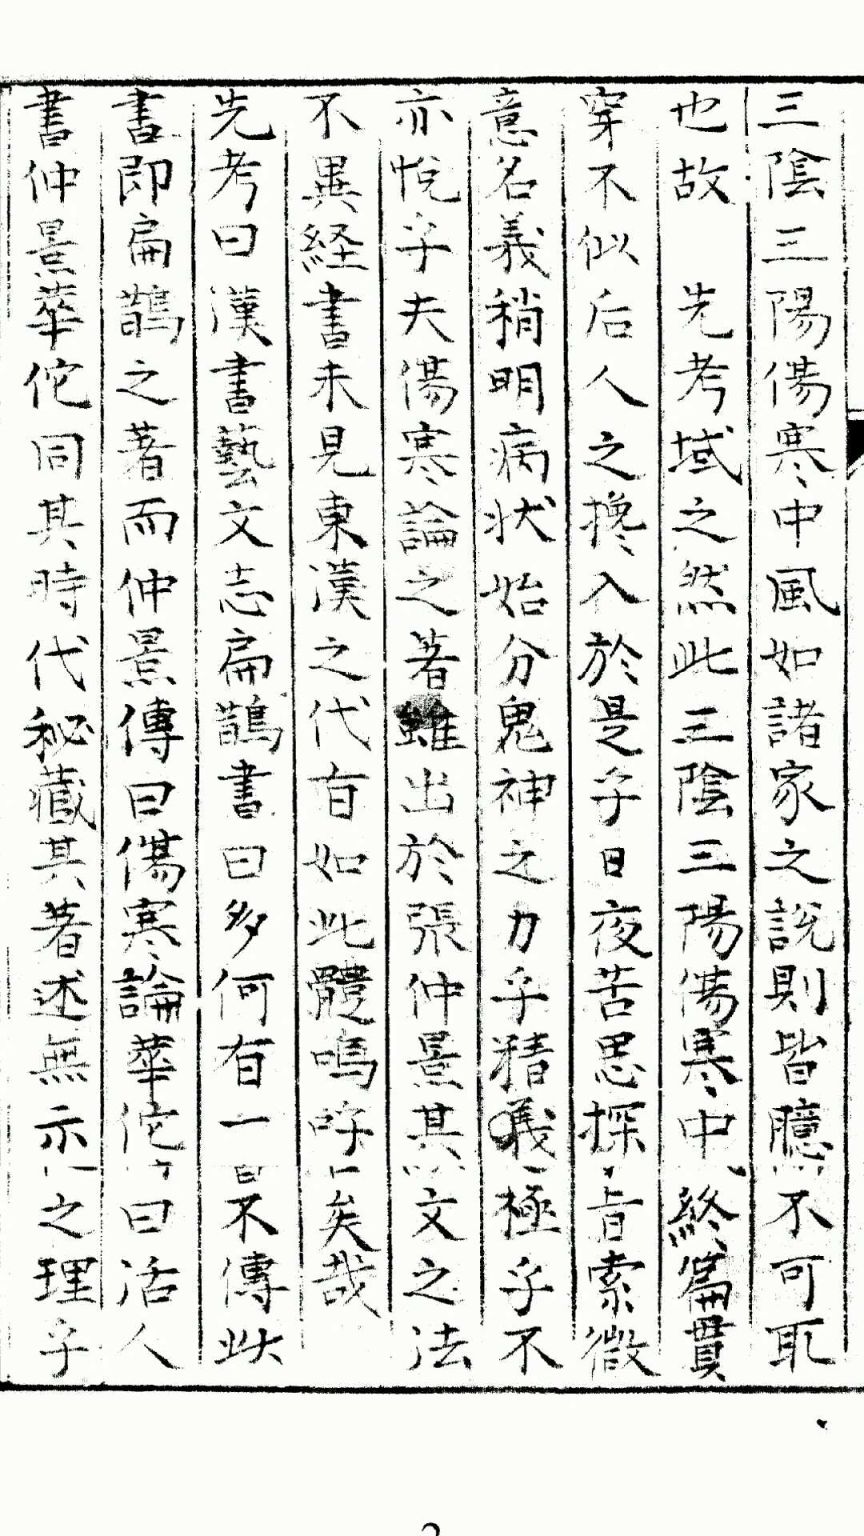 三陰三陽傷寒中風如諸家之說則皆臆不可取
也故　先考域之然此三陰三陽傷寒中終篇貫
穿不似后人之攙入於是乎日夜苦思探旨索微
意名義稍明病状始分鬼神之力乎精義極乎不
亦悅乎夫傷寒論之著雖出於張仲景其文之法
不異経書未見東漢之代有如此體嗚呼矣哉
先考曰漢書藝文志扁鵲書曰多何有一不傳此
書即扁鵲之著而仲景傳曰傷寒論華佗曰活人
書仲景華佗同其時代秘藏其著述無示之理乎